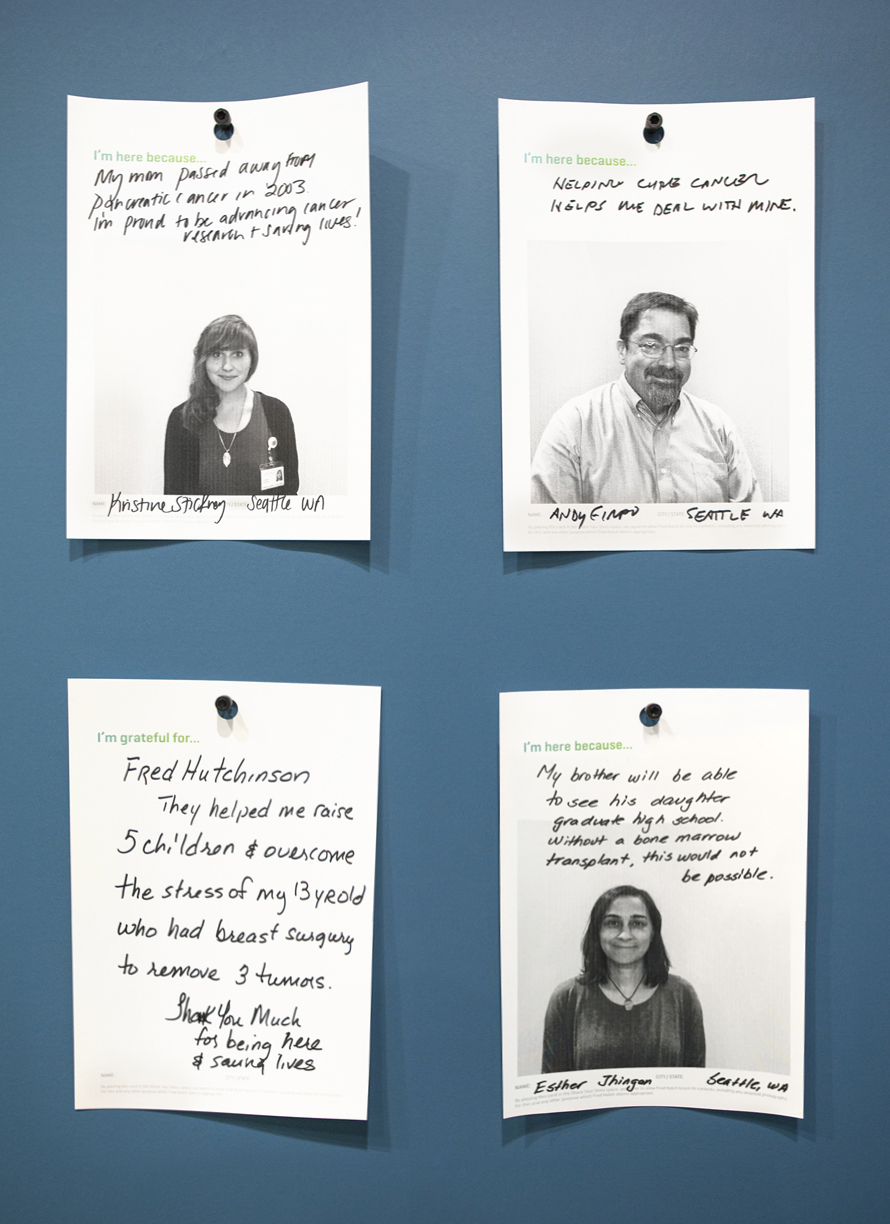 I'm here because...
My mom passed away from
pancreatic cancer in 2003.
I'm proud to be advancing cancer
research + saving lives!
Kristine Stickney Seattle WA
I'm here because...
HELPING CURE CANCER
HELPS ME DEAL WITH MINE.
NAME: ANDY CITY / STATE: SEATTLE WA
I'm grateful for...
Fred Hutchinson
They helped me raise
5 children & overcome
the stress of my 13 yr old
who had breast surgury
to remove 3 tumors.
Thank You Much
for being here
& saving lives
NAME:
I'm here because...
My brother will be able
to see his daughter
graduate high school.
Without a bone marrow
transplant, this would not
be possible.
NAME: Esther Jhingan CITY / STATE: Seattle, WA